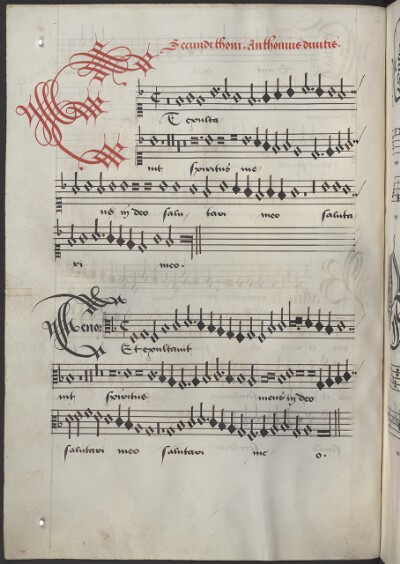 Secundi thoni. Anthonius divitis.
Et exulta
vit spiritus me
us in deo salu tari meo saluta
ri meo.
Tenor
Et exultavit
vit spiritus meus in deo
salutari meo salutari me o.